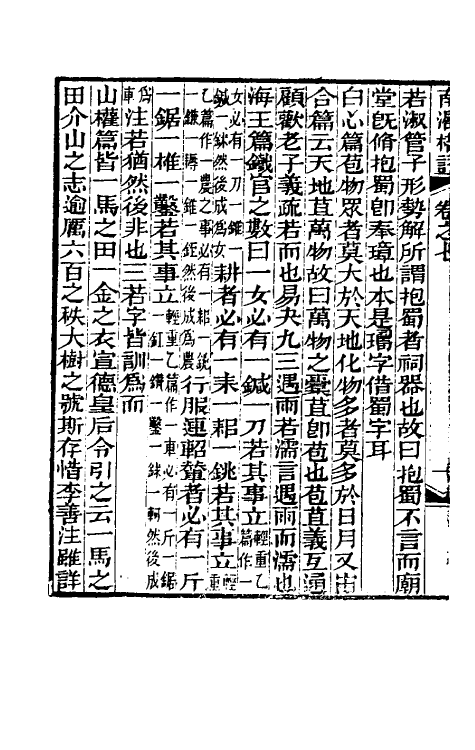 南漘楛語 卷之四
若淑管子形勢解所謂抱蜀者祠器也故曰抱蜀不言而廟
堂旣脩抱蜀卽奉璋也本是瓗字借蜀字耳
白心篇苞物眾者莫大於天地化物多者莫多於日月又宙
合篇云天地苴萬物故曰萬物之橐苴卽苞也苞苴義互通
顧歡老子義疏若而也易夬九三遇雨若濡言遇雨而濡也
海王篇鐵官之數曰一女必有一鍼一刀若其事立輕重乙篇作一
女必有一刀一錐一鍼一鉥然後成爲女耕者必有一耒一耜一銚若其事立輕重
乙篇作一農之事必有一耜一銚一鎌一鎒一錐一銍然後成爲農行服連軺輂者必有一斤
一鋸一椎一鑿若其事立輕重乙篇作一車必有一斤一鋸一釭一鑽一鑿一銶一軻然後成
爲車注若猶然後非也三若字皆訓爲而
山權篇皆一馬之田一金之衣宣德皇后令引之云一馬之
田介山之志逾厲六百之秩大樹之號斯存惜李善注雖詳